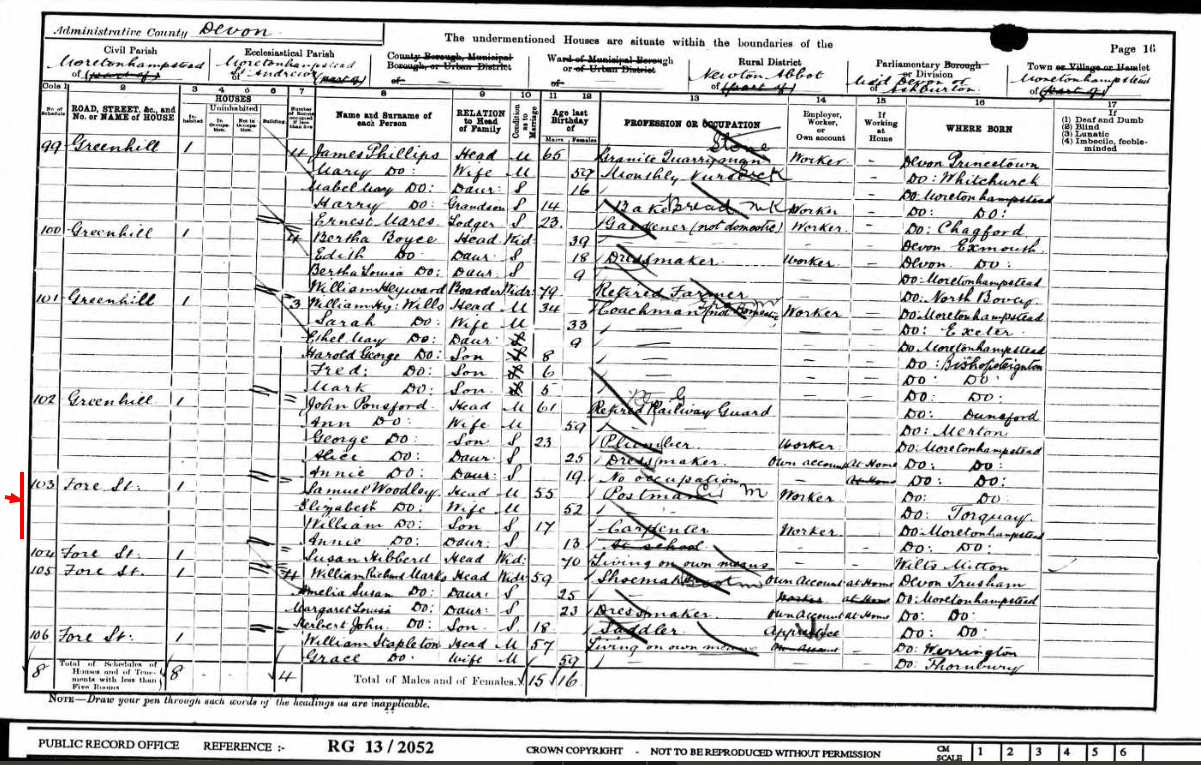 Administrative County Devon.
The undermentioned Houses are situate within the boundaries of the
Page 16
Civil Parish
Ecclesiastical Parish
County Borough, Municipal Borough, or Urban District
Ward of Municipal Borough or of Urban District
Rural District
Parliamentary Borough or Division
Town or Village or Hamlet
Moretonhampstead
of (part of)
Moretonhampstead
St Andrew (part of)
of
of
Newton Abbot
of (part of)
Mid Devon or
Ashburton.
Moretonhampstead
of (part of)
Cols 1 2 3 4 5 6 7 8 9 10 11 12 13 14 15 16 17
No. of Schedule
ROAD, STREET, &c., and No. or NAME of HOUSE
HOUSES
Inhabited
Uninhabited
In Occupation.
Not in Occupation.
Building.
Number of Rooms occupied if less than five
Name and Surname of each Person
RELATION to Head of Family
Condition as to Marriage
Age last Birthday of
Males Females
PROFESSION OR OCCUPATION
Employer, Worker, or Own account
If Working at Home
WHERE BORN
If
(1) Deaf and Dumb
(2) Blind
(3) Lunatic
(4) Imbecile, feeble-minded
Stone
99 Greenhill 1 4 James Phillips Head M 65 Granite Quarryman Worker - Devon Princetown
Mary Do: Wife M 59 Monthly Nurse Sick - Do: Whitchurch
Mabel May Do: Daur: S 16 - Do: Moretonhampstead
Harry Do: Grandson S 14 Bread Worker - Do: Do:
Ernest Mares Lodger S 23. Gardener (not domestic) Worker. - Do: Chagford.
100 Greenhill 1 4 Bertha Boyce Head Wid: 39 - Devon Exmouth
Edith Do: Daur: S 18 Dressmaker. Worker - Devon Do:
Bertha Louisa Do: Daur. S 9 - - Do: Moretonhampstead
William Heyward Boarder Widr: 79 Retired Farmer - - Do: North Bovey
101 Greenhill 1 3 William Hy: Wills Head M 34 Coachman (not Domestic) Worker - Do: Moretonhampstead
Sarah Do: Wife M 33 - - - Do: Exeter
Ethel May Do: Daur 9 - - - Do: Moretonhampstead
Harold George Do: Son 8 - - - Do: Bishopsteignton
Fred: Do: Son 6 - - - Do: Do:
Mark Do: Son 5 - - - Do: Do:
102 Greenhill 1 John Ponsford Head M 61 Retired Railway Guard - - Do: Dunsford
Ann Do: Wife M 59 - - - Do: Merton
George Do: Son S 23 Plumber Worker - Do: Moretonhampstead
Alice Do: Daur. S 25 Dressmaker. Own account At Home Do: Do:
Annie Do: Daur: S 19 No occupation - At Home Do: Do:
103 Fore St: 1 Samuel Woodley Head M 55 Postman M Worker - Do: Do
Elizabeth Do: Wife M 52 - - - Do: Torquay.
William Do: Son S 17 Carpenter Worker - Do: Moretonhampstead
Annie Do: Daur: S 13 At school. - - Do: Do:
104 Fore St: 1 Susan Hibberd Head Wid: 70 Living on own means - - Wilts Mitton
105 Fore St. 1 4 William Richard Marks Head Widr 59 Shoemaker Own Account at Home Devon Trusham
Amelia Susan Do: Daur: S 25 Worker at Home Do: Moretonhampstead
Margaret Louisa Do: Daur: S 23 Dressmaker. Own Account at Home Do: Do:
Herbert John. Do: Son. S 18 Saddler. Apprentice Do: Do:
106 Fore St: 1 William Stapleton Head M 57 Living on own means Own Account - Do: Werrington
Grace Do: Wife M 59 - - Do: Thornbury
8 Total of Schedules of Houses and of Tenements with less than Five Rooms 8 - - - 4 Total of Males and of Females. 15 16
NOTE—Draw your pen through such words of the headings as are inapplicable.
PUBLIC RECORD OFFICE REFERENCE :- RG 13 / 2052 CROWN COPYRIGHT - NOT TO BE REPRODUCED WITHOUT PERMISSION CM SCALE 1 2 3 4 5 6